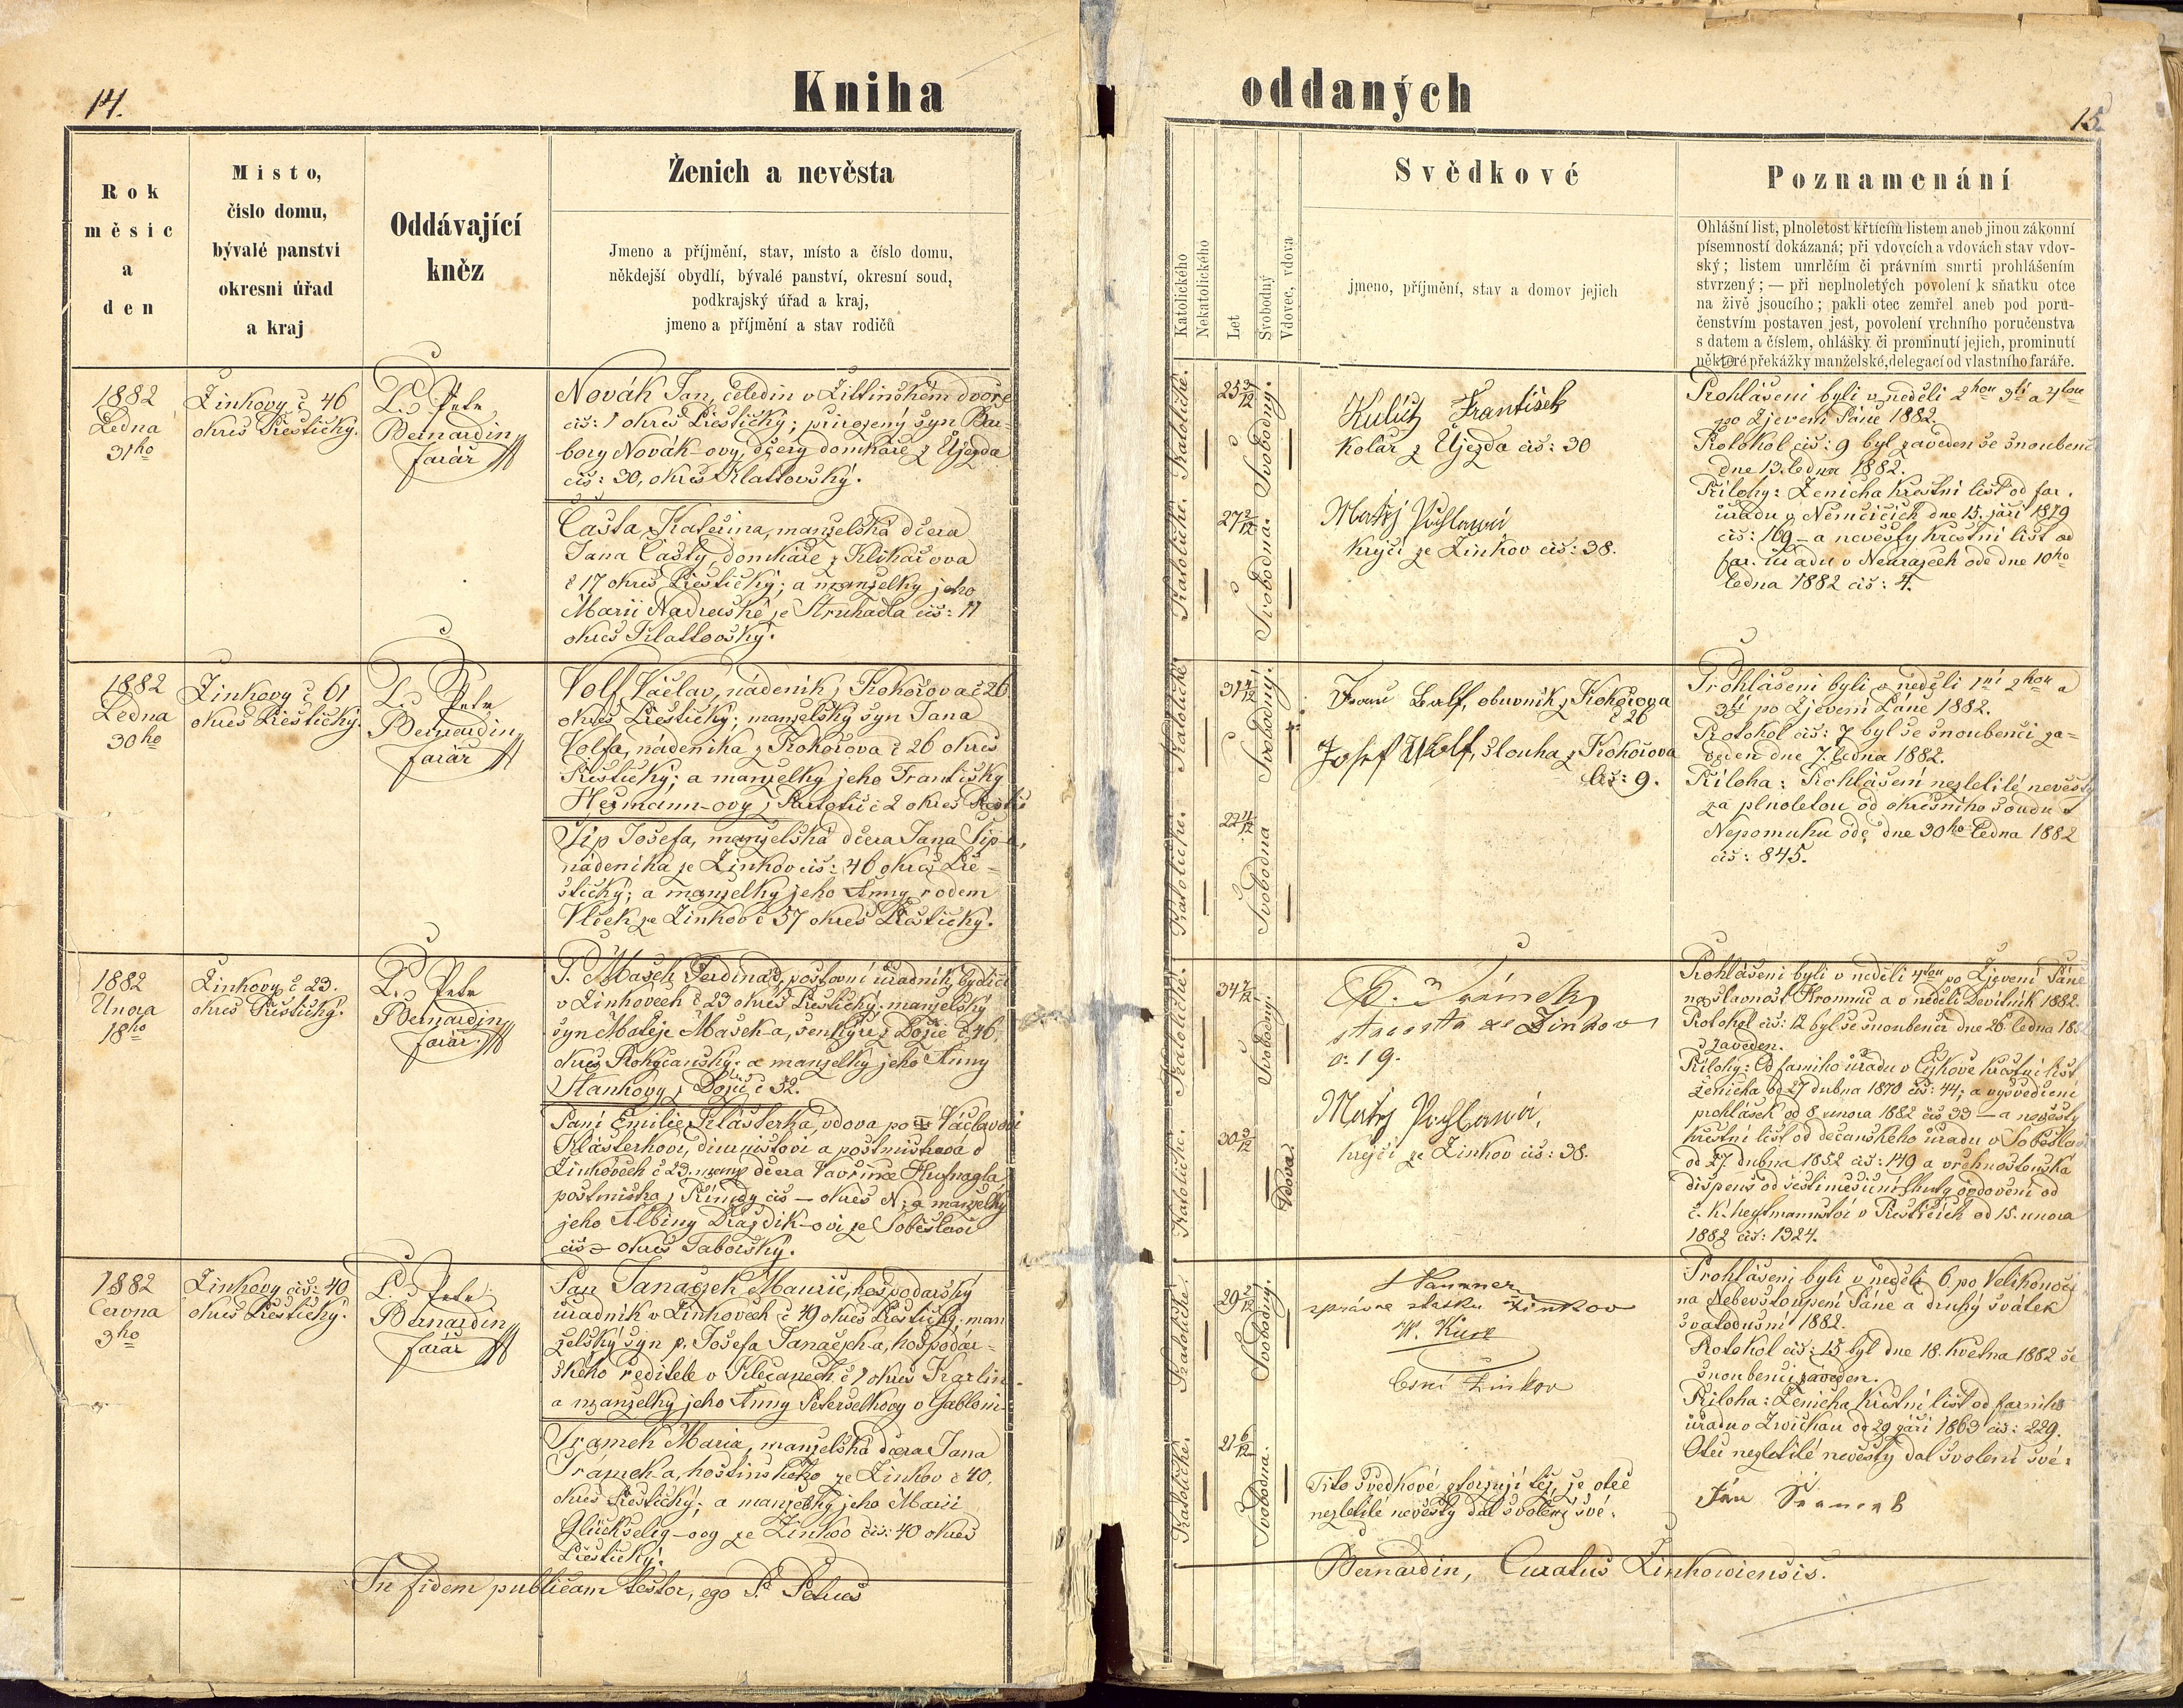 14.
Kniha
Rok
měsíc
a
den
Místo,
číslo domu,
bývalé panství
okresní úřad
a kraj
Oddávající
kněz
Ženich a nevěsta
Jmeno a příjmění, stav, místo a číslo domu,
někdejší obydlí, bývalé panství, okresní soud,
podkrajský úřad a kraj,
jmeno a příjmění a stav rodičů
1882
Ledna
31ho
Žinkovy č 46
okres Přeštický.
P. Petr
Bernardin
farář
Novák Jan, čeledin v Žittinském dvoře
čís: 1 okres Přeštický; přirozený syn Bar-
bory Novák-ovy, dcery domkáře z Újezda
čís: 30, okres Klattovský.
Částa Kateřina, manželská dcera
Jana Částy, domkáře z
č 17 okres Přeštický; a manželky jeho
Marii ze Struhadla čís: 11
okres Klattovský.
1882
Ledna
30ho
Žinkovy č 61
okres Přeštický.
P. Petr
Bernardin
farář
Volf Václav, nádeník z Kokořova č 26
okres Přeštický; manželský syn Jana
Volfa, nádeníka z Kokořova č 26 okres
Přeštický; a manželky jeho Františky
Heřmann-ovy z č 2 okres
Šíp Josefa, manželská dcera Jana Šípa,
nádeníka ze Žinkov čís: 46 okres Pře-
štický; a manželky jeho Anny rodem
Vlček ze Žinkov č 57 okres Přeštický.
1882
Února
18ho
Žinkovy č 23.
okres Přeštický.
P. Petr
Bernardin
farář
P. Mašek Ferdinad, poštovní úřadník, bydlící
v Žinkovech č 23 okres Přeštický; manželský
syn Matěje Mašek-a, šenkýře z č 46,
okres Rokycanský; a manželky jeho Anny
Staňkovy z č 32.
Paní Emilie Klášterka, vdova po Václavovi
Klášterkovi, diurnistovi a poštmistrová v
Žinkovech č 23. manž dcera Vavřince Hufnagla,
poštmistra z čís — okres N; a manželky
jeho Albiny Drazdík-ovi ze Soběslavi
čís — okres Táborský.
1882
Června
3ho
Žinkovy čís: 40
okres Přeštický.
P. Petr
Bernardin
farář
Pan Janaczek Mauric, hospodářský
úřadník v Žinkovech č 49 okres Přeštický; man
želský syn p. Josefa Janaczek-a, hospodář-
ského ředitele v Klecanech č 1 okres Karlín
a manželky jeho Anny v
Šrámek Maria, manželská dcera Jana
Šrámek-a, hostinského ze Žinkov č 40,
okres Přeštický; a manželky jeho Marii
Glückselig-ovy ze Žinkov čís: 40 okres
Přeštický.
In fidem publicam testor, ego P. Petrus
oddaných
15
Katolického
Nekatolického
Let
Svobodný
Vdovec, vdova
Svědkové
jmeno, příjmění, stav a domov jejich
Poznamenání
Ohlášní list, plnoletost křtícím listem aneb jinou zákonní
písemností dokázaná; při vdovcích a vdovách stav vdov-
ský; listem umrlčím či právním smrti prohlášením
stvrzený; — při neplnoletých povolení k sňatku otce
na živě jsoucího; pakli otec zemřel aneb pod poru-
čenstvím postaven jest, povolení vrchního poručenstva
s datem a číslem, ohlášky či prominutí jejich, prominutí
některé překážky manželské, delegací od vlastního faráře.
Katolické.
25 3/12
Svobodný.
František
kolář z Újezda čís: 30
Katolické.
27 2/12
Svobodná.
Matěj
krejčí ze Žinkov čís: 38.
Prohlášeni byli v neděli 2hou 3tí a 4tou
po Zjevení Páně 1882.
Protokol čís: 9 byl zaveden se snoubenci
dne 13. ledna 1882.
Přílohy: Ženicha křestní list od far.
úřadu v Němčicích dne 15. září 1879
čís: 169 — a nevěsty křestní list od
far. úřadu v ode dne 10ho
ledna 1882 čís: 4.
Katolické.
31 4/12
Svobodný.
Volf, obuvník z Kokořova
č 26
Josef Wolf, slouha z Kokořova
čís: 9.
Katolické.
22 4/12
Svobodná
Prohlášeni byli v neděli 1ní 2hou a
3tí po Zjevení Páně 1882.
Protokol čís: 7 byl se snoubenci za-
veden dne 7. ledna 1882.
Příloha: Prohlášení nezletilé nevěsty
za plnoletou od okresního soudu v
Nepomuku ode dne 30ho ledna 1882
čís: 845.
Katolické.
34
Svobodný.
Šrámek
starosta ze Žinkov
č. 19.
Katolické.
30 3/12
Vdova.
Matěj
krejčí ze Žinkov čís: 38.
Prohlášeni byli v neděli 4tou po Zjevení Páně
na slavnost Hromnic a v neděli Devítník 1882.
Protokol čís: 12 byl se snoubenci dne 26 ledna 1882
zaveden.
Přílohy: Od farního úřadu v křestní list
ženicha od 27 dubna 1870 čís: 44; a vysvědčení
prohlášek od 8 února 1882 čís 33 — a nevěsty
křestní list od děkanského úřadu v Soběslavi
od 27. dubna 1852 čís: 149 a vrchnostenská
dispens od šestiměsíční lhůty ovdovění od
c. k. hejtmanství v Přešticích od 15. února
1882 čís: 1324.
Katolické.
29
Svobodný.
správce statku Žinkov
Žinkov
Katolické.
21 6/12
Svobodná.
Tito svědkové stvrzují též, že otec
nezletilé nevěsty dal svolení své.
Prohlášeni byli v neděli 6. po Velikonoci
na Nebevstoupení Páně a druhý svátek
svatodušní 1882.
Protokol čís: 15 byl dne 18. května 1882 se
snoubenci zaveden.
Příloha: Ženicha křestní list od farního
úřadu v Zwickau od 29 září 1863 čís: 229.
Otec nezletilé nevěsty dal svolení své:
Jan Šrámek
Bernardin, Curatus Žinkowiensis.